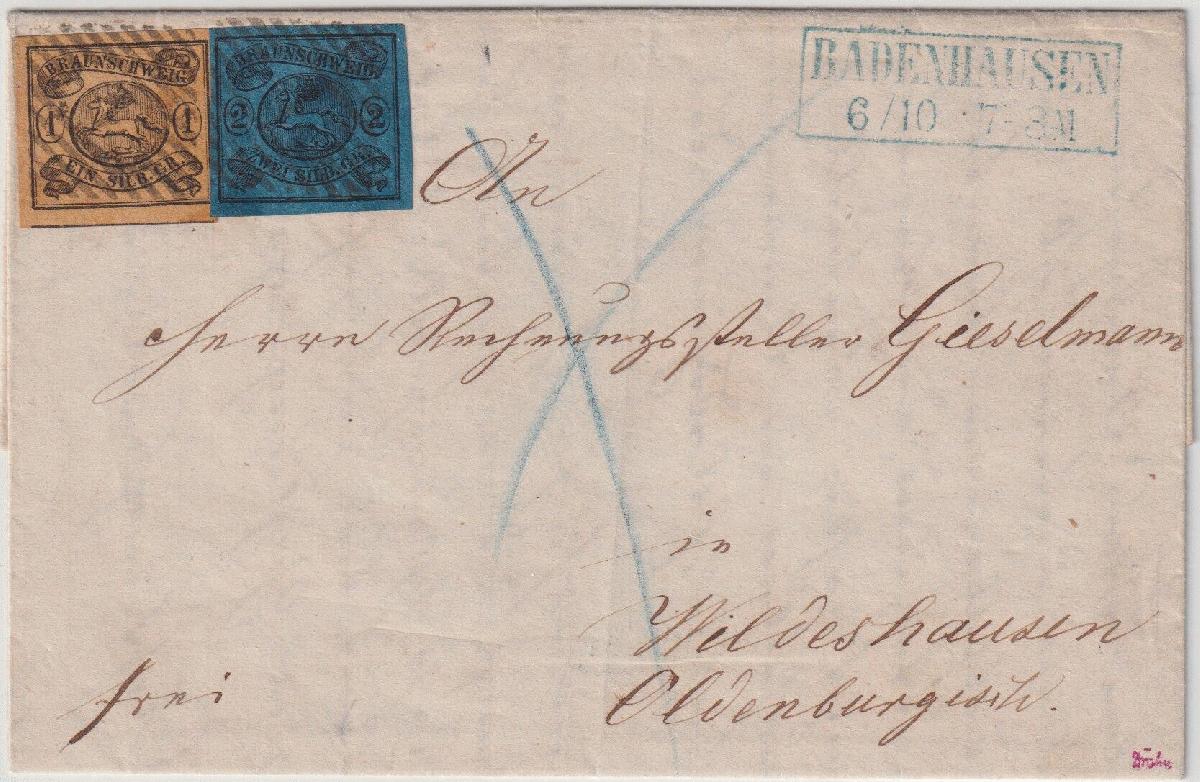 BRAUNSCHWEIG
1 1
EIN SILB.GR.
BRAUNSCHWEIG
2 2
ZWEI SILB.GR.
BADENHAUSEN
6/10 7-8M
An
Herrn Rechnungssteller Gieselmann
in
Wildeshausen
Oldenburgisch.
frei